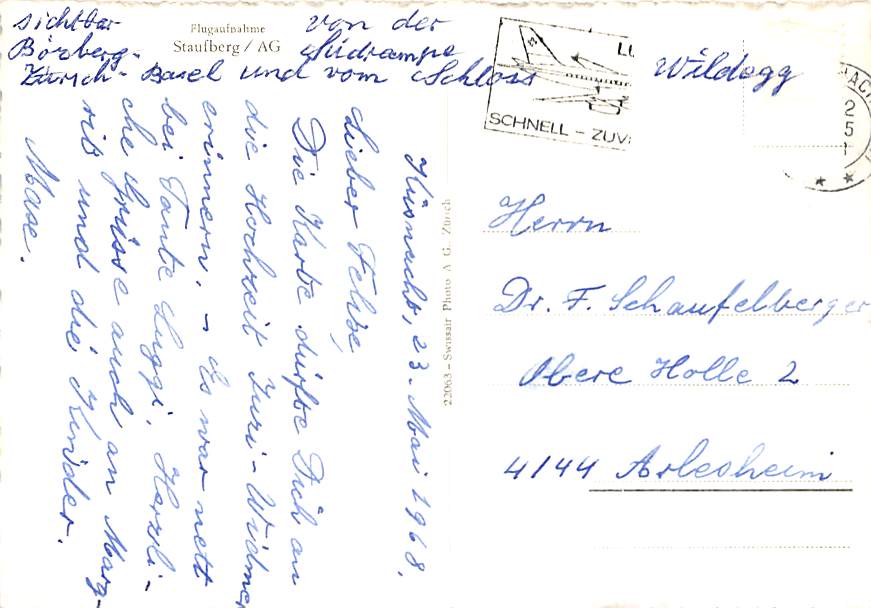 sichtbar von der
Börberg- Südrampe
Zürich - Basel und vom Schloss Wildegg
Flugaufnahme
Staufberg / AG
SCHNELL – ZUV
Küsnacht, 23. Mai 1968.
Lieber Felix,
Die Karte dürfte Dich an
die Hochzeit Zuri - Widmer
erinnern. – Es war nett
bei Tante Luggi. Herzli-
che Grüsse auch an Marg-
rit und die Kinder.
Max.
22063 – Swissair Photo A G., Zürich
Herrn
Dr. F. Schaufelberger
Obere Holle 2
4144 Arlesheim